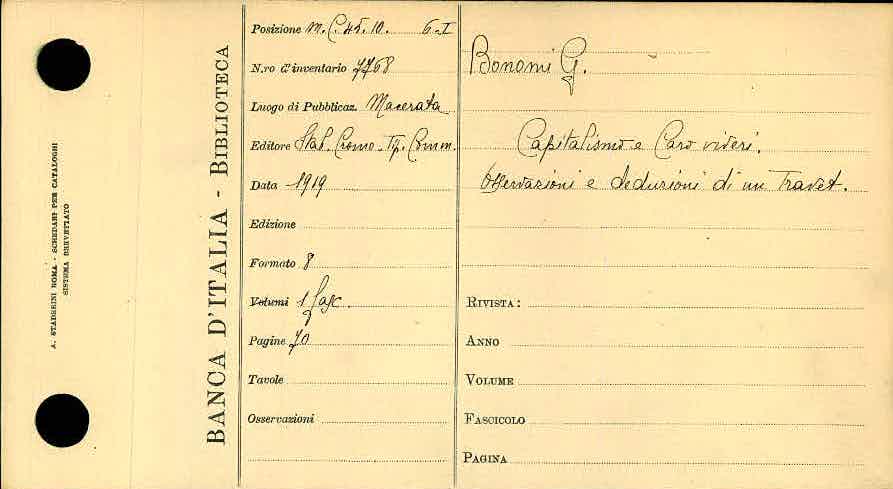 A. STADERINI ROMA - SCHEDARI PER CATALOGHI
SISTEMA BREVETTATO
BANCA D'ITALIA - BIBLIOTECA
Posizione M. C. 45. 10. 6-I
N.ro d'inventario 7768
Luogo di Pubblicaz. Macerata
Editore Stab. Cromo-Tip. Comm.
Data 1919
Edizione
Formato 8
Volumi 1 fasc.
Pagine 70
Tavole
Osservazioni
Bonomi G.
Capitalismo e Caro viveri.
Osservazioni e deduzioni di un Travet.
RIVISTA:
ANNO
VOLUME
FASCICOLO
PAGINA